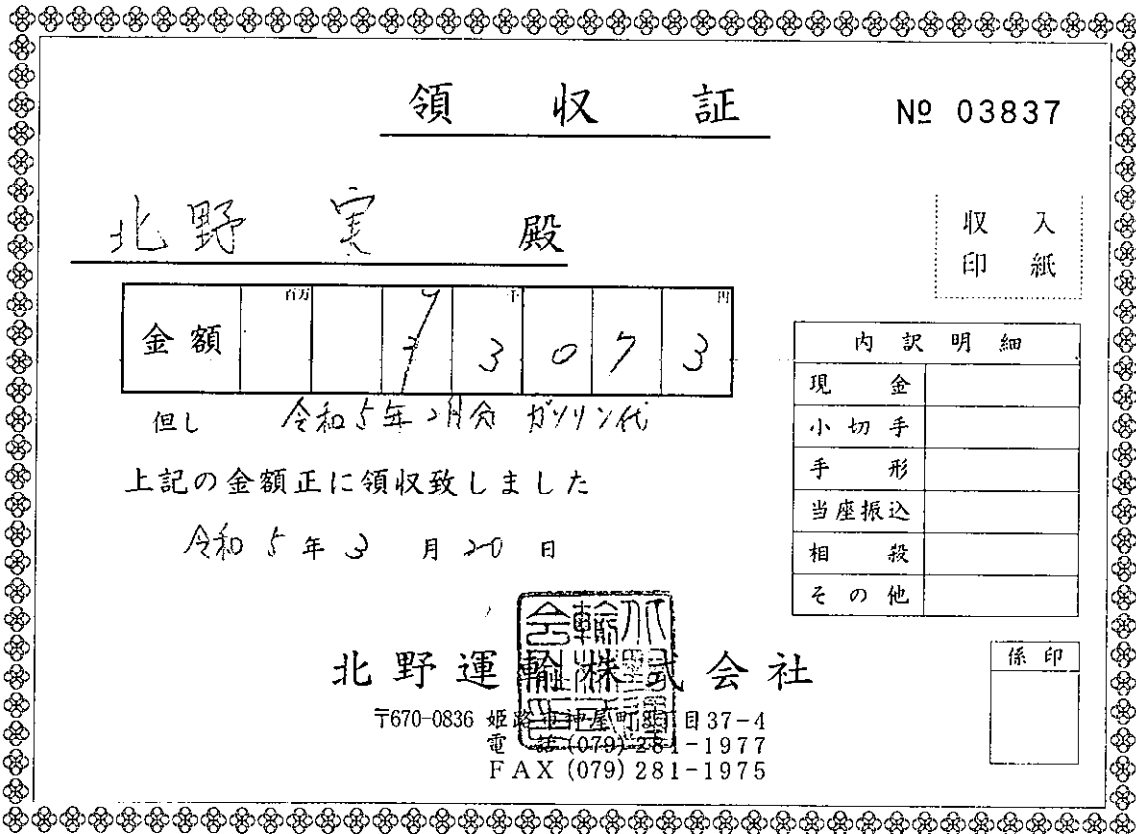 領収証
№ 03837
北野 実 殿
収入
印紙
金額 百万 千 円
¥ 3 0 7 3
但し 令和5年2月分 ガソリン代
上記の金額正に領収致しました
令和5年3月20日
内訳明細
現金
小切手
手形
当座振込
相殺
その他
係印
北野運輸株式会社
〒670-0836 姫路市神屋町 丁目37-4
電話(079)281-1977
FAX (079)281-1975